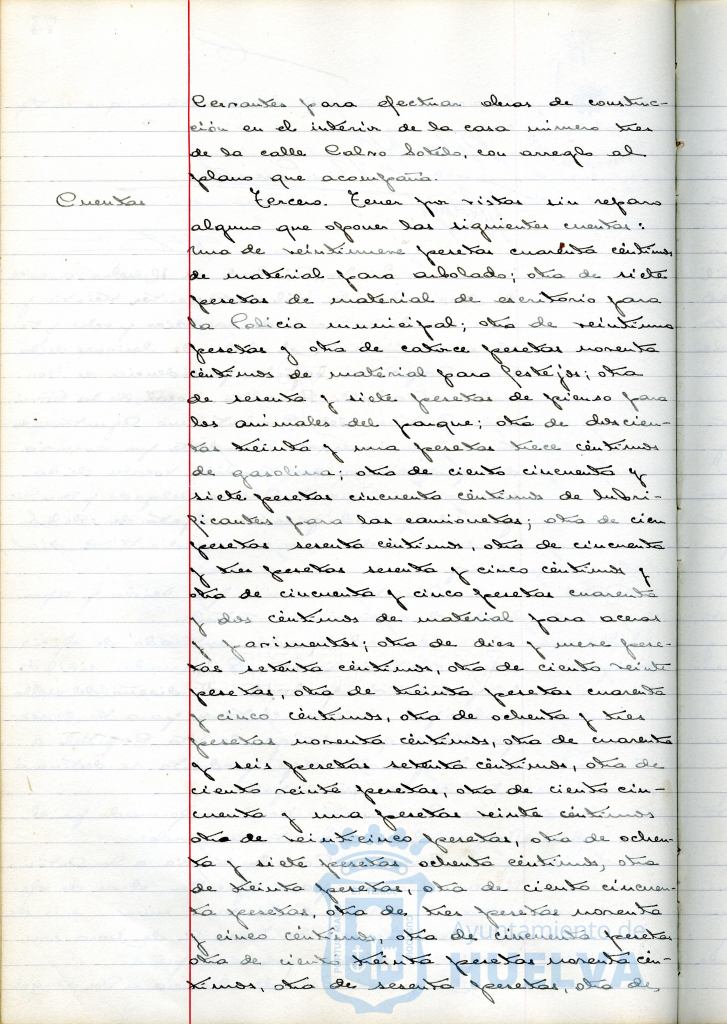 Cervantes para efectuar obras de construc-
ción en el interior de la casa número tres
de la calle Calvo Sotelo, con arreglo al
plano que acompaña.
Cuentas
Tercero. Tener por vistas sin reparo
alguno que oponer las siguientes cuentas:
una de veintinueve pesetas cuarenta céntimos
de material para arbolado; otra de siete
pesetas de material de escritorio para
la Policia municipal; otra de veintiuna
pesetas y otra de catorce pesetas noventa
céntimos de material para festejos; otra
de sesenta y siete pesetas de pienso para
los animales del parque; otra de doscien-
tas treinta y una pesetas trece céntimos
de gasolina; otra de ciento cincuenta y
siete pesetas cincuenta céntimos de lubri-
ficantes para las camionetas; otra de cien
pesetas sesenta céntimos, otra de cincuenta
y tres pesetas sesenta y cinco céntimos y
otra de cincuenta y cinco pesetas cuarenta
y dos céntimos de material para aceras
y pavimentos; otra de diez y nueve pese-
tas setenta céntimos, otra de ciento veinte
pesetas, otra de treinta pesetas cuarenta
y cinco céntimos, otra de ochenta y tres
pesetas noventa céntimos, otra de cuarenta
y seis pesetas setenta céntimos, otra de
ciento veinte pesetas, otra de ciento cin-
cuenta y una pesetas veinte céntimos
otra de veinticinco pesetas, otra de ochen-
ta y siete pesetas ochenta céntimos, otra
de treinta pesetas, otra de ciento cincuen-
ta pesetas, otra de tres pesetas noventa
y cinco céntimos, otra de cincuenta pesetas
otra de ciento treinta pesetas noventa cén-
timos, otra de sesenta pesetas, otra de,
Ayuntamiento de
HUELVA